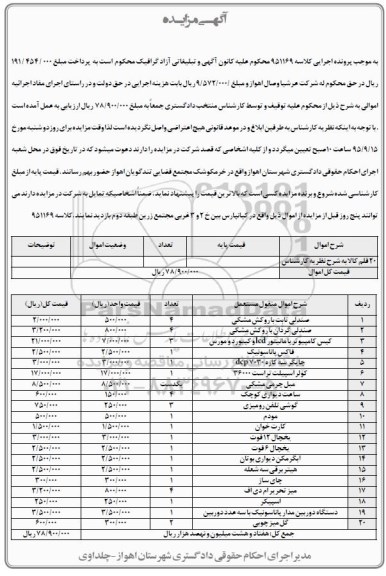 آگهی مزایده
به موجب پرونده اجرایی کلاسه ۹۵۱۱۶۹ محکوم علیه کانون آگهی و تبلیغاتی آزاد گرافیک محکوم است به پرداخت مبلغ ۱۹۱/۴۵۴/۰۰۰
ریال در حق محکوم له شرکت عرشیا وصال اهواز و مبلغ ۹/۵۷۲/۰۰۰ ریال بابت هزینه اجرایی در حق دولت و در راستای اجرای مفاد اجرائیه
اموالی به شرح ذیل از محکوم علیه توقیف و توسط کارشناس منتخب دادگستری جمعاً به مبلغ ۷۸/۹۰۰/۰۰۰ ریال ارزیابی به عمل آمده است
. با توجه به اینکه نظریه کارشناس به طرفین ابلاغ و در موعد قانونی هیچ اعتراضی واصل نگردیده است لذا وقت مزایده برای روز دوشنبه مورخ
۹۵/۹/۱۵ ساعت ۱۰ صبح تعیین میگردد و از کلیه اشخاصی که قصد شرکت در مزایده را دارند دعوت میشود که در تاریخ فوق در محل شعبه
اجرای احکام حقوقی دادگستری شهرستان اهواز واقع در خرمکوشک مجتمع قضایی تندگویان اهواز حضور بهم رسانند. قیمت پایه از مبلغ
کارشناسی شده شروع و برنده مزایده کسی است که بالاترین قیمت را پیشنهاد نماید. ضمنا اشخاصیکه تمایل به شرکت در مزایده دارند می
توانند پنج روز قبل از مزایده از اموال ذیل واقع در کیانپارس بین خ ۲ و ۳ غربی مجتمع زرین طبقه دوم بازدید نمایند. کلاسه ۹۵۱۱۶۹
شرح اموال قیمت پایه تعداد وضعیت اموال توضیحات
۲۰ قلم کالا به شرح نظریه کارشناس
قیمت کل اموال ۷۸/۹۰۰/۰۰۰ ریال
ردیف شرح اموال منقول مستعمل تعداد قیمت واحد (ریال) قیمت کل (ریال)
۱ صندلی ثابت با روکش مشکی ۴ ۵۰۰/۰۰۰ ۲/۰۰۰/۰۰۰
۲ صندلی گردان با روکش مشکی ۴ ۸۰۰/۰۰۰ ۳/۲۰۰/۰۰۰
۳ کیس کامپیوتر با مانیتور led و کیبورد و موس ۳ ۷/۰۰۰/۰۰۰ ۲۱/۰۰۰/۰۰۰
۴ فاکس پاناسونیک ۱ ۲/۵۰۰/۰۰۰ ۲/۵۰۰/۰۰۰
۵ چاپگر سه کاره dcp۷۰۳۰ ۱ ۳/۰۰۰/۰۰۰ ۳/۰۰۰/۰۰۰
۶ کولر اسپیلت تراست ۳۶۰۰۰ ۱ ۱۷/۰۰۰/۰۰۰ ۱۷/۰۰۰/۰۰۰
۷ مبل چرمی مشکی یکدست ۸/۵۰۰/۰۰۰ ۸/۵۰۰/۰۰۰
۸ ساعت دیواری کوچک ۴ ۱۵۰/۰۰۰ ۶۰۰/۰۰۰
۹ گوشی تلفن رومیزی ۳ ۲۵۰/۰۰۰ ۷۵۰/۰۰۰
۱۰ مودم ۱ ۵۰۰/۰۰۰ ۵۰۰/۰۰۰
۱۱ کارت خوان ۱ ۱/۵۰۰/۰۰۰ ۱/۵۰۰/۰۰۰
۱۲ یخچال ۱۲ فوت ۱ ۳/۰۰۰/۰۰۰ ۳/۰۰۰/۰۰۰
۱۳ یخچال ۶ فوت ۱ ۲/۵۰۰/۰۰۰ ۲/۵۰۰/۰۰۰
۱۴ آبگرمکن دیواری بوتان ۱ ۲/۵۰۰/۰۰۰ ۲/۵۰۰/۰۰۰
۱۵ هیتر برقی سه شعله ۱
۱۶ چای ساز ۱ ۳۰۰/۰۰۰ ۳۰۰/۰۰۰
۱۷ میز تحریر ام دی اف ۴ ۸۰۰/۰۰۰ ۳/۲۰۰/۰۰۰
۱۸ اسپیکر ۱ ۲۵۰/۰۰۰ ۲۵۰/۰۰۰
۱۹ دستگاه دوربین مدار پاناسونیک با سه عدد دوربین ۱ ۲/۵۰۰/۰۰۰ ۲/۵۰۰/۰۰۰
۲۰ گل میز چوبی ۲ ۳۰۰/۰۰۰ ۶۰۰/۰۰۰
جمع کل: هفتاد و هشت میلیون و نهصد هزار ریال ۷۸/۹۰۰/۰۰۰ ریال
مدیر اجرای احکام حقوقی دادگستری شهرستان اهواز - چلداوی